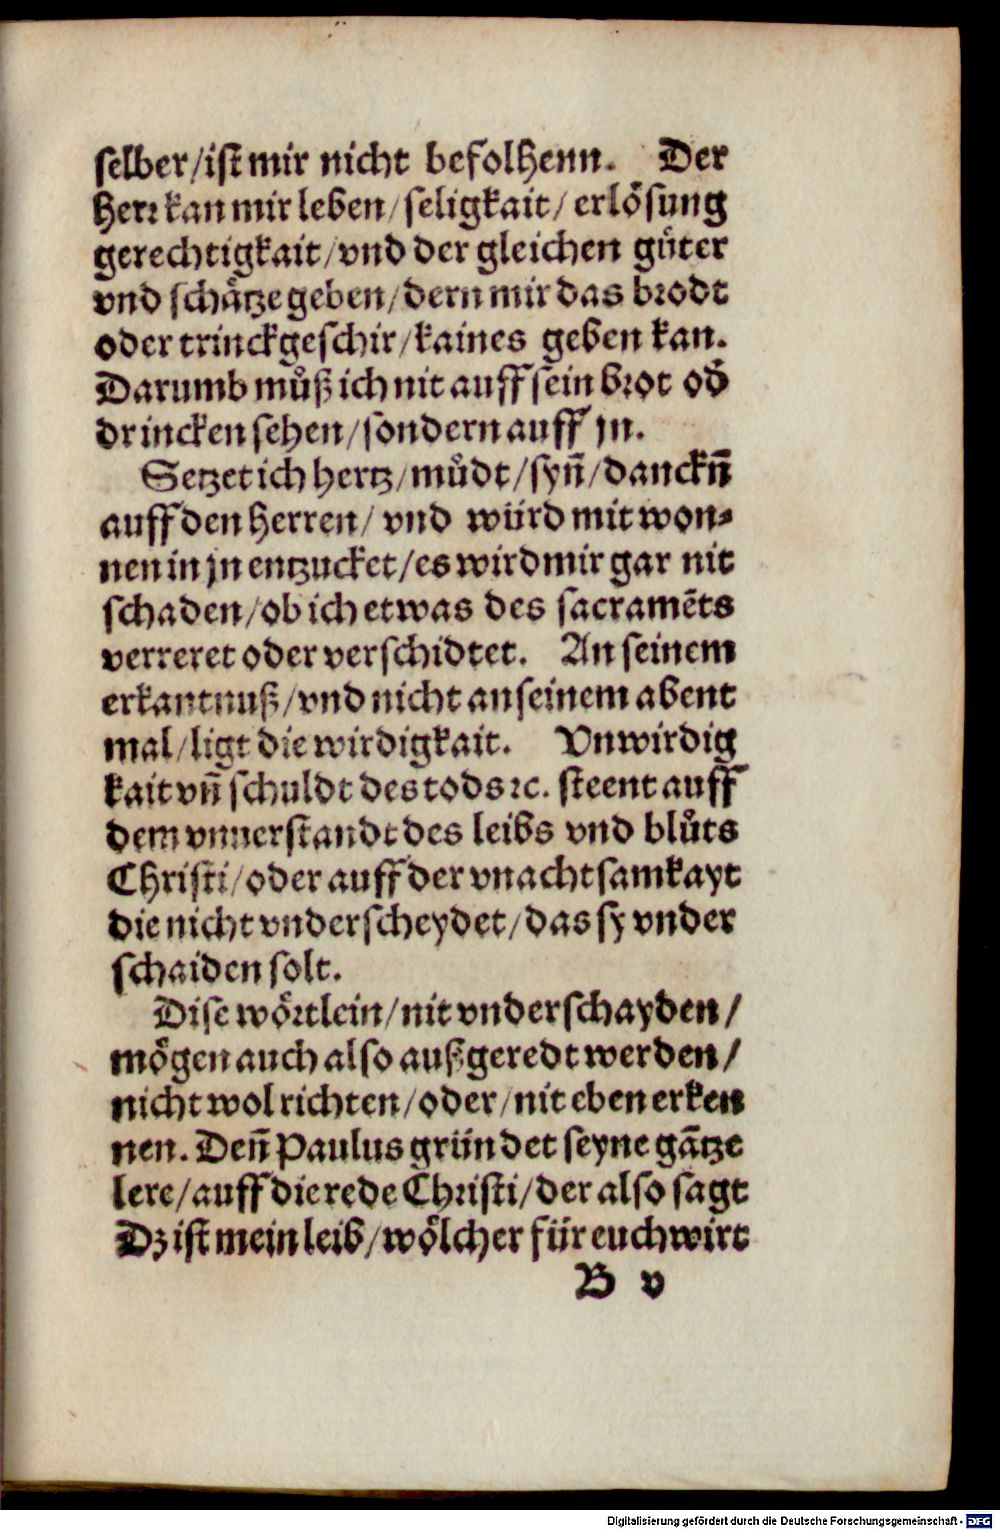 selber/ist mir nicht befolhenn. Der
Herr kan mir leben/seligkait/erlösung
gerechtigkait/vnd der gleichen gůter
vnd schätze geben/dern mir das brodt
oder trinckgeschir/kaines geben kan.
Darumb můß ich nit auff sein brot oď
drincken sehen/sondern auff jn.
Setzet ich hertz/můdt/syn̄/danckn̄
auff den Herren/ vnd würd mit won⸗
nen in jn entzucket/es wird mir gar nit
schaden/ob ich etwas des sacramēts
verreret oder verschidtet. An seinem
erkantnuß/vnd nicht an seinem abent
mal/ligt die wirdigkait. Vnwirdig
kait vn̄ schuldt des tods ꝛc. steent auff
dem vnuerstandt des leibs vnd blůts
Christi/oder auff der vnachtsamkayt
die nicht vnderscheydet/das sy vnder
schaiden solt.
Dise wörtlein/nit vnderschayden/
mögen auch also außgeredt werden/
nicht wol richten/oder/nit eben erken
nen. Den̄ Paulus gründet seyne gātze
lere/auff die rede Christi/der also sagt
Dz ist mein leib/wölcher für euch wirt
B v
Digitalisierung gefördert durch die Deutsche Forschungsgemeinschaft - DFG